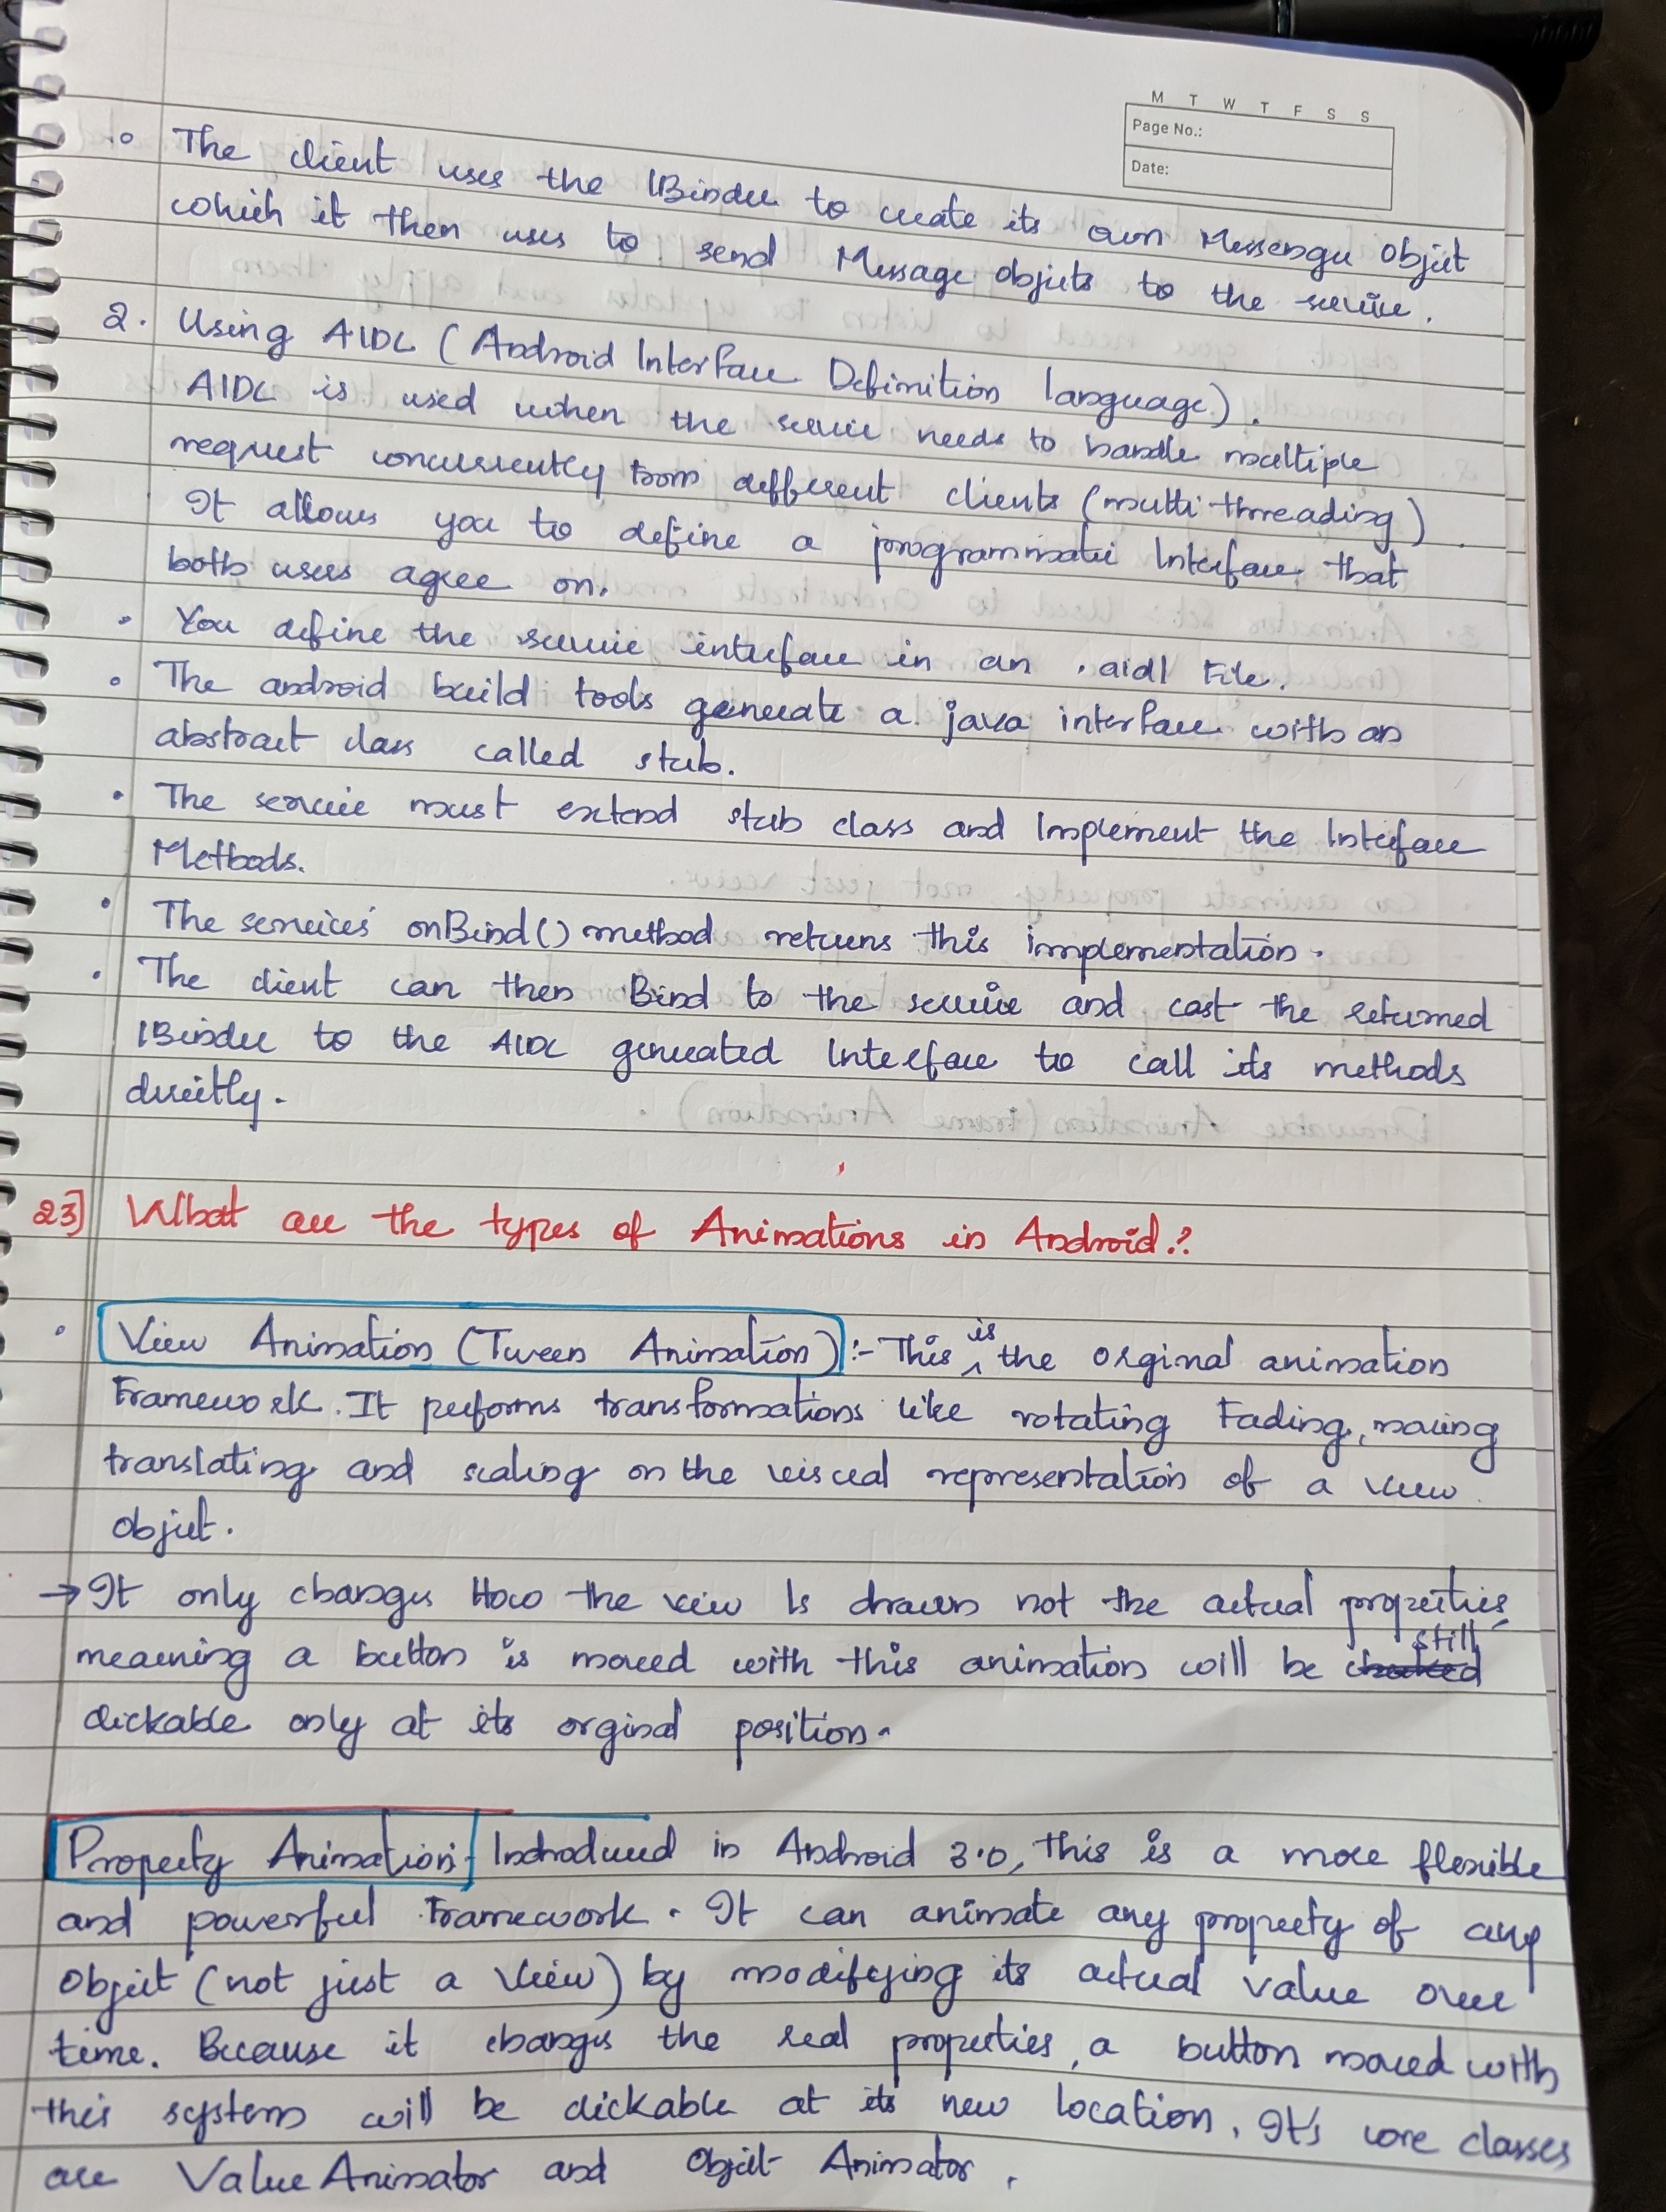 M T W T F S S
Page No.:
Date:
The client uses the IBinder to create its own Messenger object
which it then uses to send Message objects to the service.
2. Using AIDL (Android Interface Definition language).
AIDL is used when the service needs to handle multiple
request concurrently from different clients (multi-threading).
It allows you to define a programmatic Interface that
both users agree on.
• You define the service interface in an .aidl File.
• The android build tools generate a java interface with an
abstract class called stub.
• The service must extend stub class and Implement the Interface
Methods.
• The services' onBind() method returns this implementation.
• The client can then Bind to the service and cast the returned
IBinder to the AIDL generated Interface to call its methods
directly.
23] What are the types of Animations in Android?
• View Animation (Tween Animation) :- This is the orginal animation
Framework. It performs transformations like rotating Fading, moving
translating and scaling on the visual representation of a view
object.
→ It only changes How the view Is drawn not the actual properties,
meaning a button is moved with this animation will be still
clickable only at its orginal position.
Property Animation:- Introduced in Android 3.0, this is a more flexible
and powerful Framework. It can animate any property of any
object (not just a view) by modifying its actual value over
time. Because it changes the real properties, a button moved with
this system will be clickable at its new location. It's core classes
are Value Animator and Object Animator.